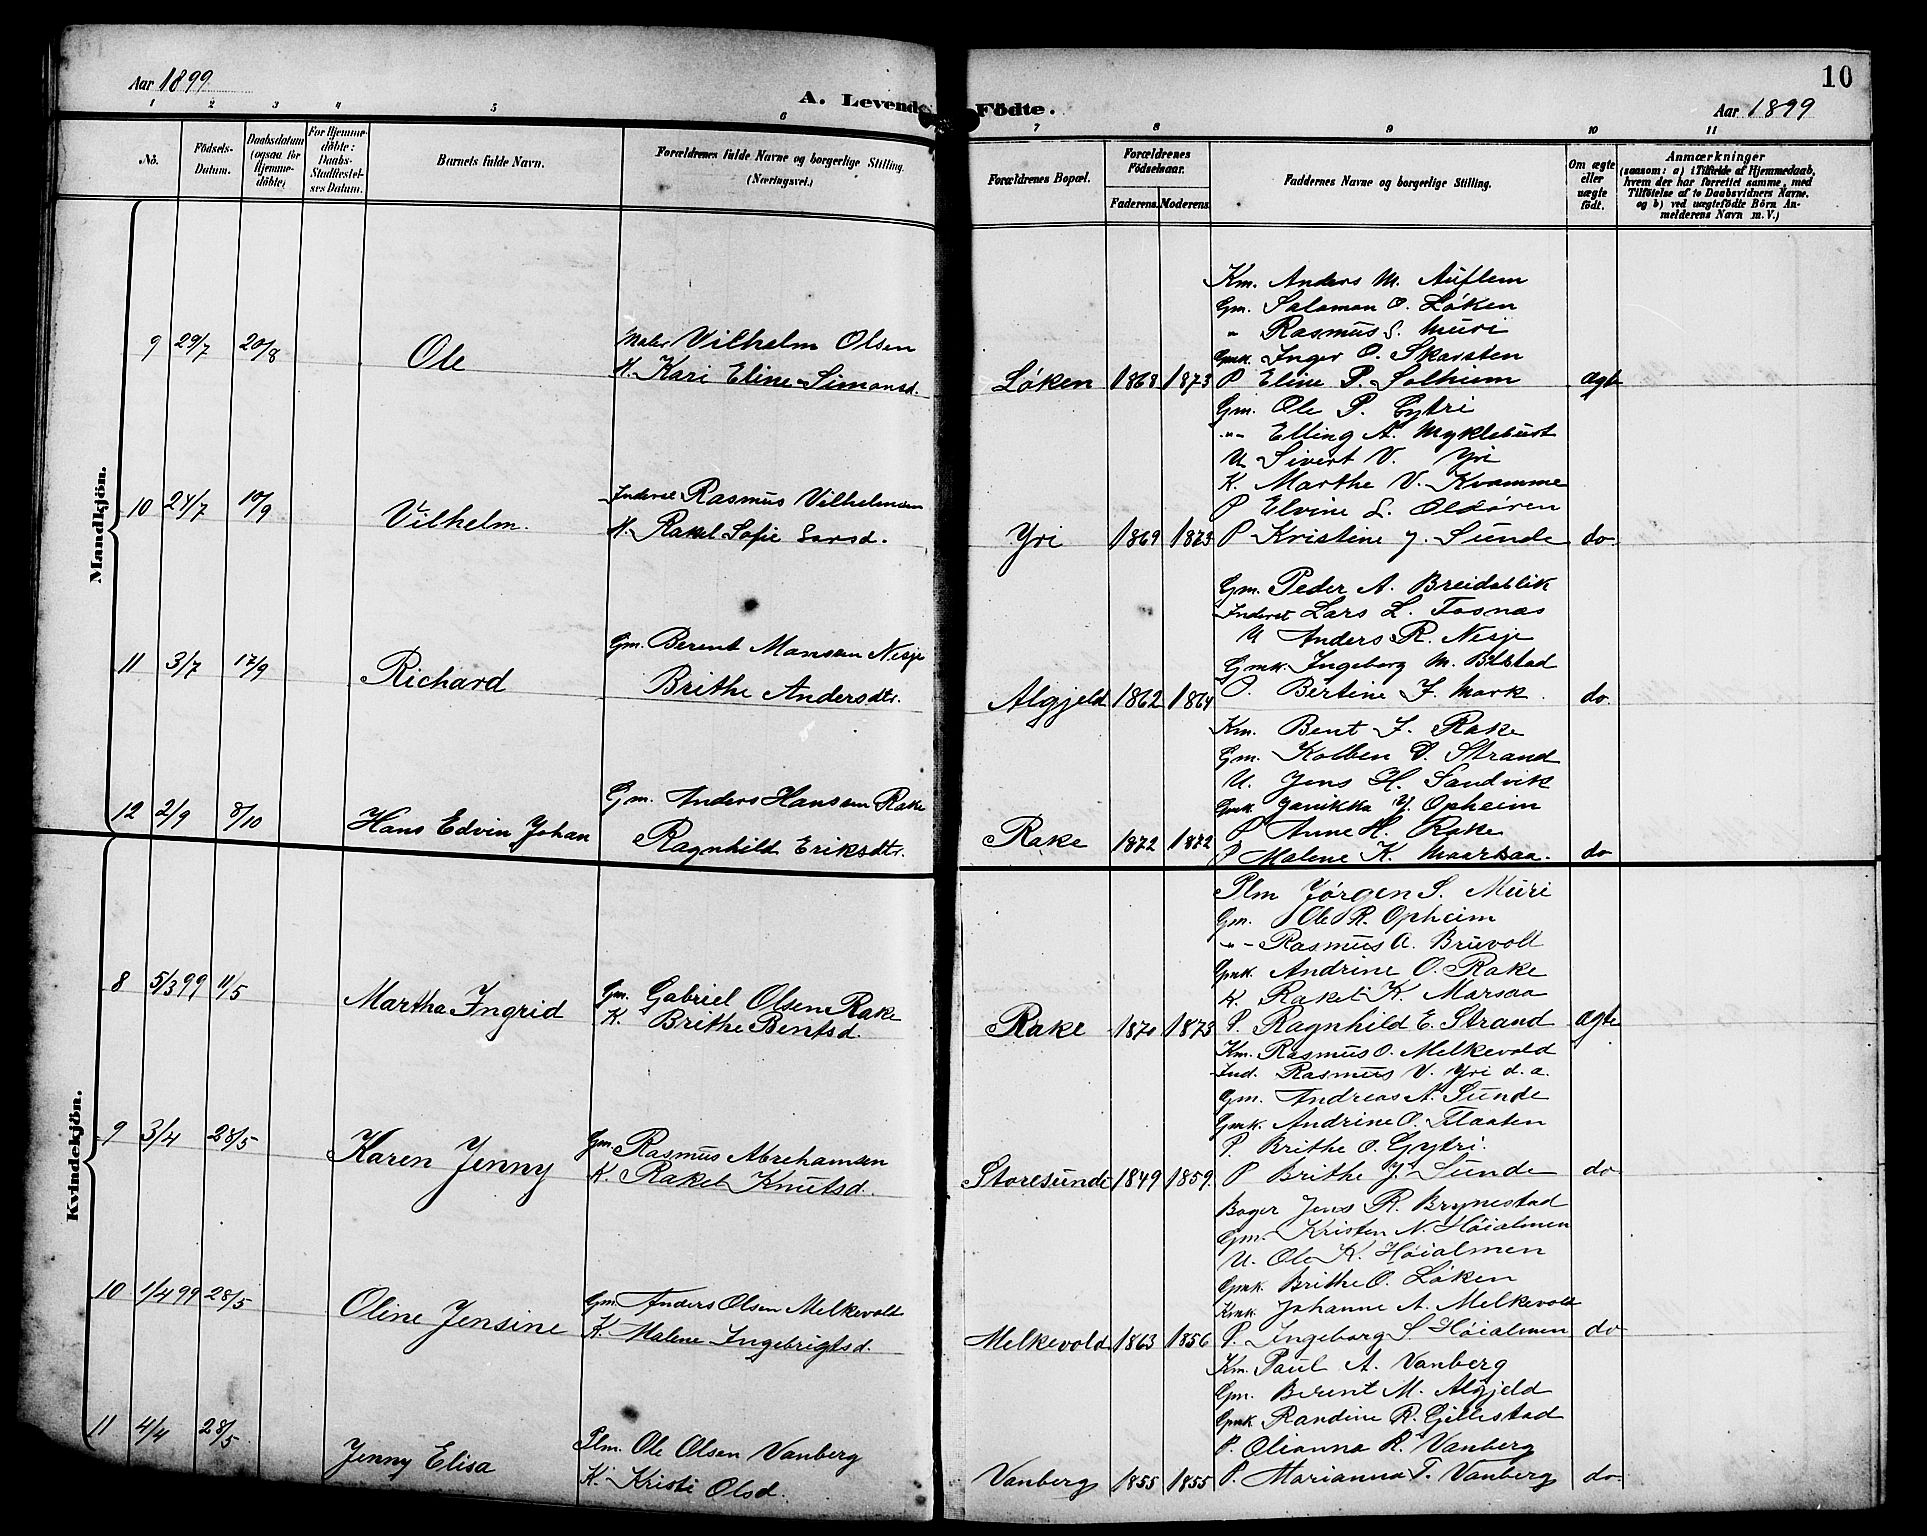 Aar 1899
A. Levende Födte.
10
Aar 1899
1 2 3 4 5 6 7 8 9 10 11
No.
Födsels-Datum.
Daabsdatum (ogsaa for Hjemme-döbte)
For Hjemme-döbte: Daabs-Stadfæstel-ses Datum.
Barnets fulde Navn.
Forældrenes fulde Navne og borgerlige Stilling. (Næringsvei.)
Forældrenes Bopæl.
Forældrenes Födselsaar.
Faderens. Moderens.
Faddernes Navne og borgerlige Stilling.
Om ægte eller uægte födt.
Anmærkninger
(saasom: a) i Tilfælde af Hjemmedaab, hvem der har forrettet samme, med Tilföielse af to Daabsvidners Navne. og b) ved uægtefödte Börn An-melderens Navn m. V.)
Mandkjön.
Km. Anders M. Auflem
Gm. Salamon O. Løken
" Rasmus S. Muri
Gmk. Inger O. Skarsten
9 29/7 20/8 Ole
Maler Vilhelm Olsen
K. Kari Eline Simonsd.
Løken 1868 1873 P Eline P. Solheim ægte
Gm. Ole P. Gytri
-"- Elling A. Myklebust
U Sivert V. Yri
K. Marthe V. Kvamme
P Elvine L. Oldøren
10 24/7 10/9 Vilhelm.
Inderst Rasmus Vilhelmsen
K. Rakel Sofie Larsd.
Yri 1869 1873 P Kristine J. Sunde do.
Gm. Peder A. Breidablik
Inderst Lars L. Fosnæs
U Anders R. Nesje
Gmk. Ingeborg M. Bilstad
11 3/7 17/9 Richard
Gm. Berent Monsen Nesje
Brithe Andersdtr.
Algjeld 1862 1864 P. Bertine J. Mork. do.
Km. Bent J. Rake
Gm. Kolben D. Strand
U. Jens H. Sandvik
Gmk. Janikka J. Opheim
P Anne H. Rake
12 2/9 8/10 Hans Edvin Johan
Gm. Anders Hansen Rake
Ragnhild Eriksdtr.
Rake 1872 1872 P Malene K. Maarsaa. do
Kvindekjön.
Plm Jørgen S. Muri
Gm. Ole R. Opheim
-"- Rasmus A. Bruvoll
Gmk. Andrine O. Rake
K. Rakel K. Marsaa
8 5/3 99 11/5 Martha Ingrid
Gm. Gabriel Olsen Rake
K. Brithe Bentsd.
Rake 1870 1873 P. Ragnhild E. Strand ægte
Km. Rasmus O. Melkevold
Ind. Rasmus V. Yri d.a.
Gm. Andreas A. Sunde
Gmk. Andrine O. Flaaten
P. Brithe O. Gytri.
9 3/4 28/5 Karen Jenny
Gm. Rasmus Abrehamsen
K. Rakel Knutsd.
Storesunde 1849 1859. P Brithe J. Sunde do
Bager Jens R. Brynestad
Gm. Kristen N. Høialmen
U. Ole K. Høialmen
Gmk. Brithe O. Løken
Kmk. Johanne A. Melkevold
10 1/4 99 28/5 Oline Jensine
Gm. Anders Olsen Melkevold
K. Malene Ingebrigtsd.
Melkevold 1863 1856 P. Ingeborg S Høialmen do
Km. Paul A. Vanberg
Gm. Berent M. Algjeld
Gmk. Randine R. Gjellestad
P. Olianna R. Vanberg
11 4/4 28/5 Jenny Elisa
Plm. Ole Olsen Vanberg
K. Kristi Olsd.
Vanberg 1855 1855 P. Marianna T. Vanberg do.